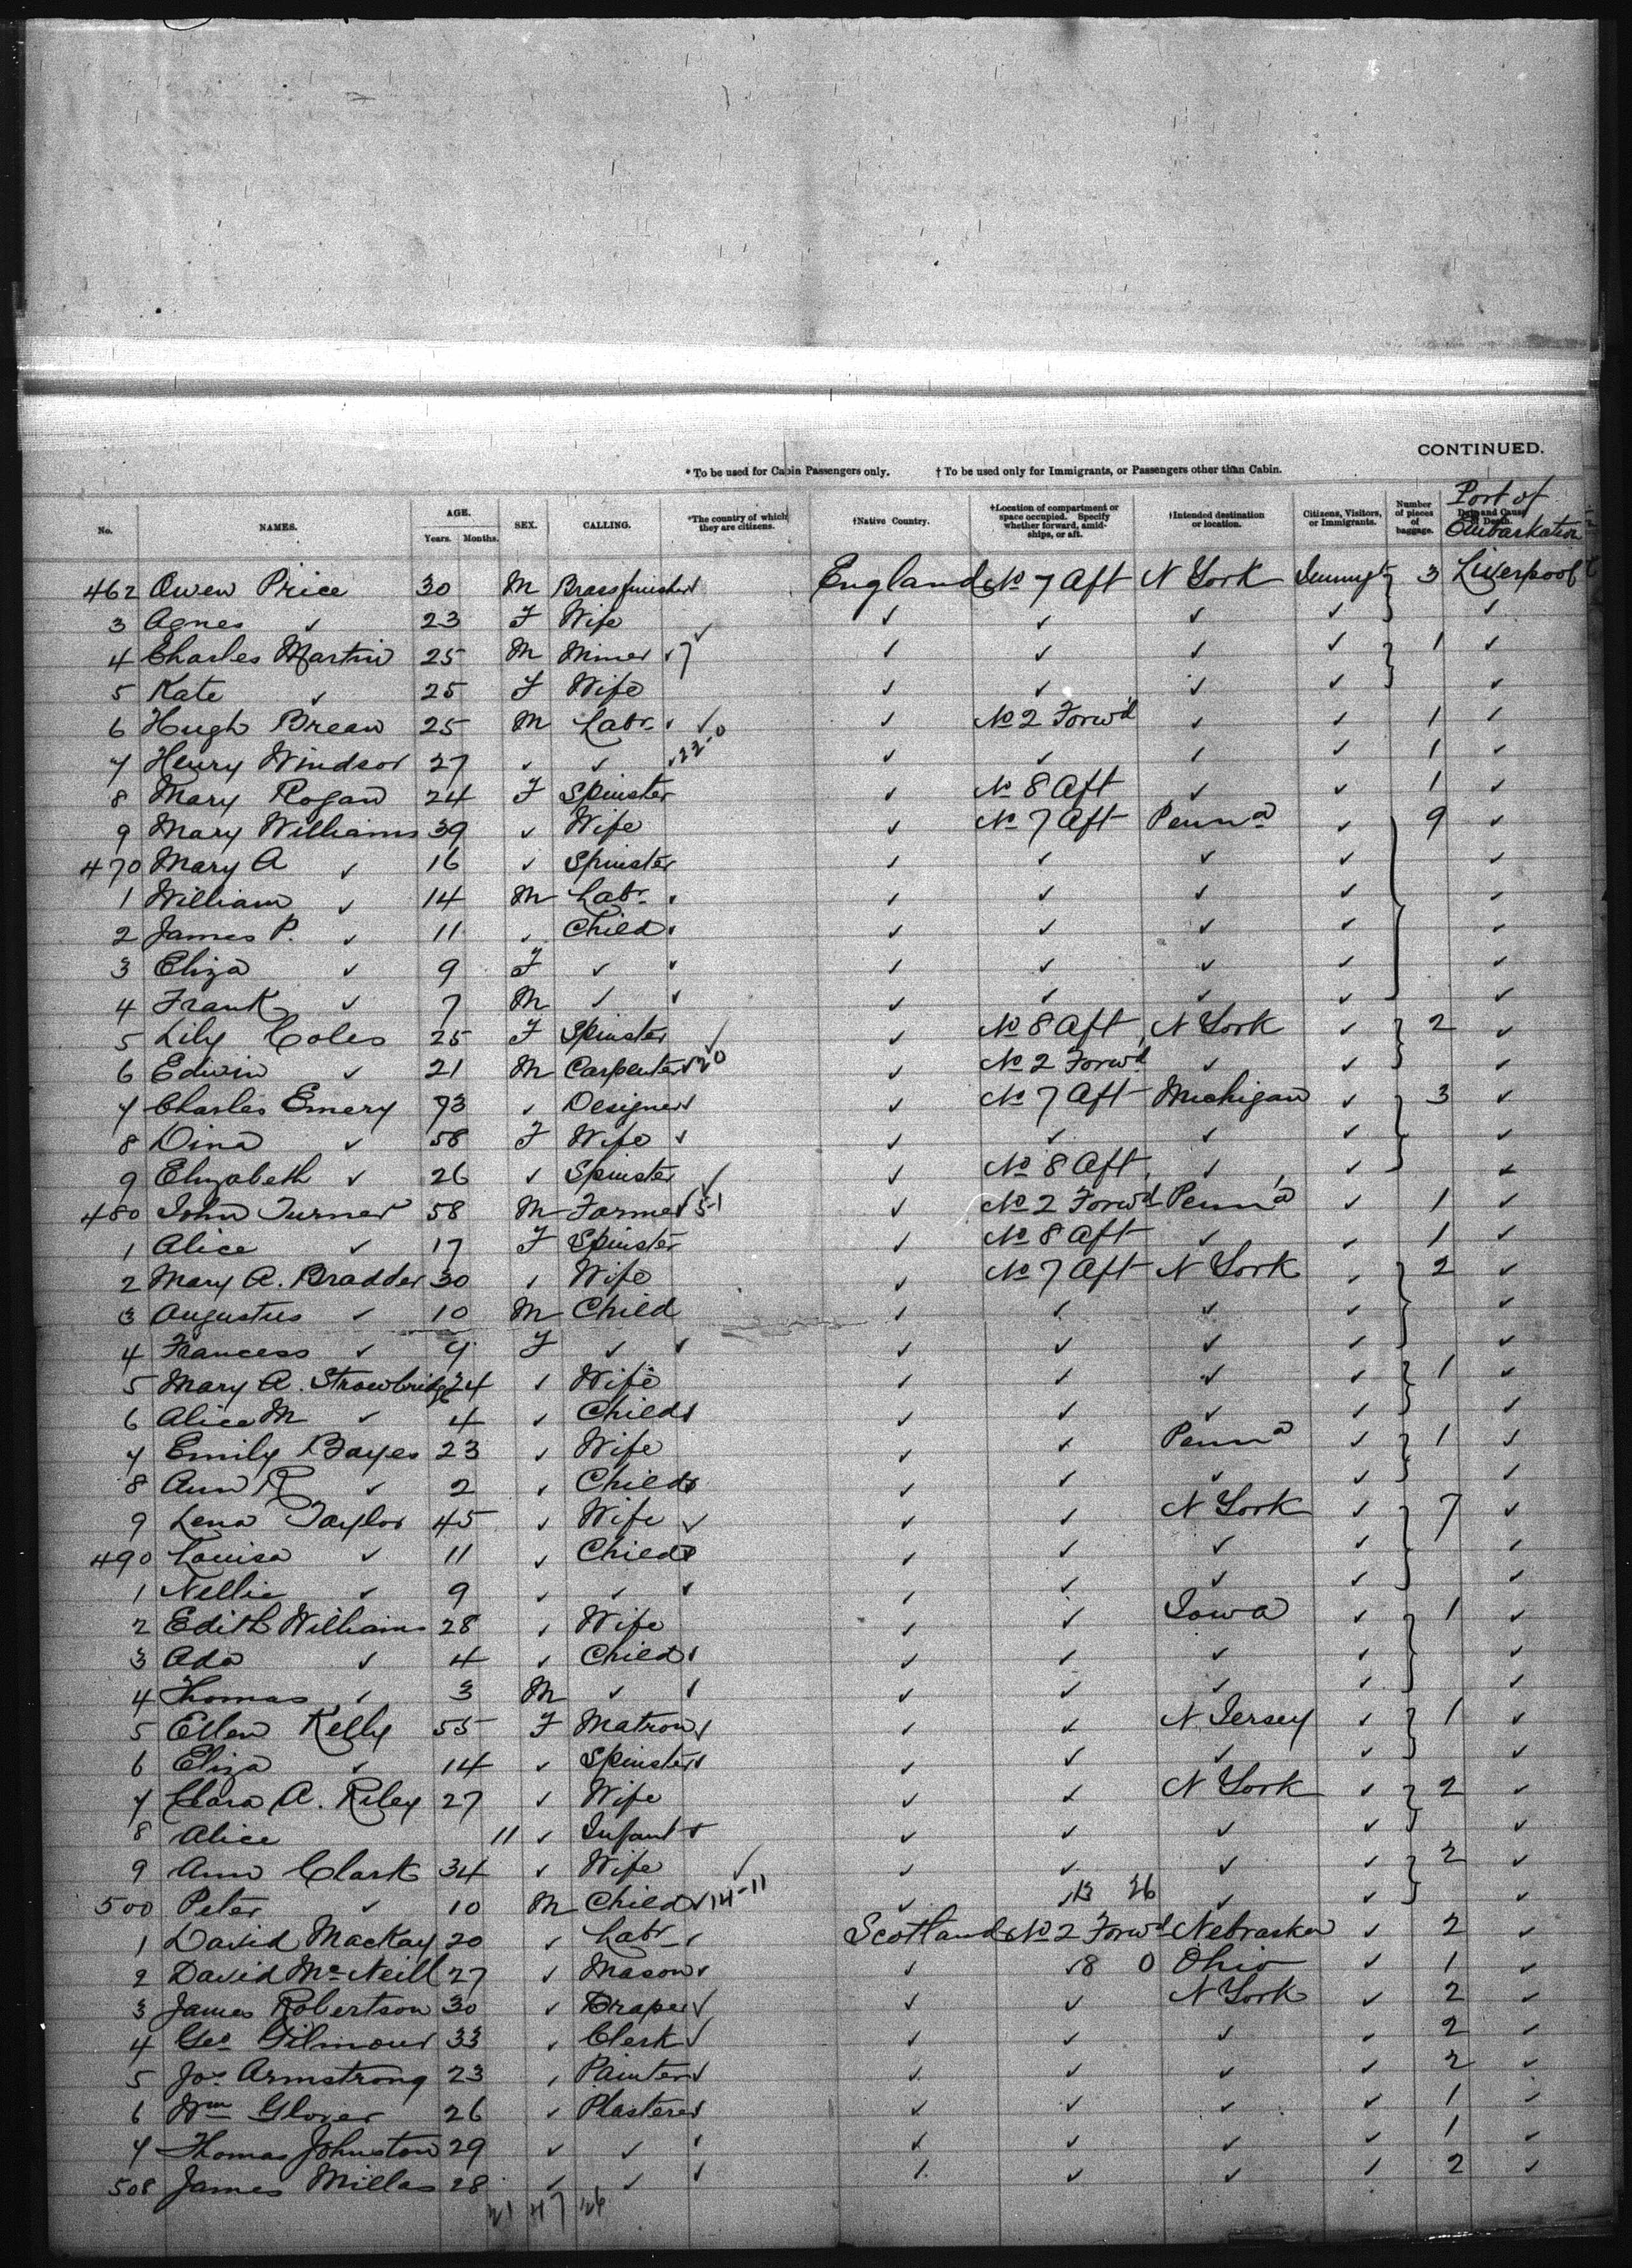 CONTINUED.
* To be used for Cabin Passengers only. † To be used only for Immigrants, or Passengers other than Cabin.
No. NAMES. AGE. Years. Months. SEX. CALLING. *The country of which they are citizens. †Native Country. †Location of compartment or space occupied. Specify whether forward, amidships, or aft. †Intended destination or location. Citizens, Visitors, or Immigrants. Number of pieces of baggage. Port of Embarkation
462 Owen Price 30 M Brassfinisher England No 7 Aft N York 3 Liverpool
3 Agnes ✓ 23 F Wife ✓ ✓ ✓ ✓ ✓
4 Charles Martin 25 M Miner 7 ✓ ✓ ✓ ✓ 1 ✓
5 Kate ✓ 25 F Wife ✓ ✓ ✓ ✓ ✓
6 Hugh Brean 25 M Labr ✓ No 2 Forwd ✓ ✓ 1 ✓
7 Henry Windsor 27 ✓ ✓ 22-0 ✓ ✓ ✓ ✓ 1 ✓
8 Mary Rogan 24 F Spinster ✓ No 8 Aft ✓ ✓ 1 ✓
9 Mary Williams 39 ✓ Wife ✓ No 7 Aft Penna ✓ 9 ✓
470 Mary A ✓ 16 ✓ Spinster ✓ ✓ ✓ ✓ ✓
1 William ✓ 14 M Labr ✓ ✓ ✓ ✓ ✓
2 James P. ✓ 11 ✓ Child ✓ ✓ ✓ ✓ ✓
3 Eliza ✓ 9 F ✓ ✓ ✓ ✓ ✓ ✓ ✓
4 Frank ✓ 7 M ✓ ✓ ✓ ✓ ✓ ✓ ✓
5 Lily Coles 25 F Spinster ✓ ✓ No 8 Aft N York ✓ 2 ✓
6 Edwin ✓ 21 M Carpenter 20 ✓ No 2 Forwd ✓ ✓ ✓
7 Charles Emery 73 ✓ Designer ✓ No 7 Aft Michigan ✓ 3 ✓
8 Dina ✓ 58 F Wife ✓ ✓ ✓ ✓ ✓ ✓
9 Elizabeth ✓ 26 ✓ Spinster ✓ ✓ No 8 Aft ✓ ✓ ✓
480 John Turner 58 M Farmer 5-1 ✓ No 2 Forwd Penna ✓ 1 ✓
1 Alice ✓ 17 F Spinster ✓ No 8 Aft ✓ ✓ 1 ✓
2 Mary A. Bradder 30 ✓ Wife ✓ No 7 Aft N York ✓ 2 ✓
3 Augustus ✓ 10 M Child ✓ ✓ ✓ ✓ ✓
4 Francess ✓ 9 F ✓ ✓ ✓ ✓ ✓ ✓ ✓
5 Mary A. Strowbridge 24 ✓ Wife ✓ ✓ ✓ ✓ 1 ✓
6 Alice M ✓ 4 ✓ Child ✓ ✓ ✓ ✓ ✓
7 Emily Bayes 23 ✓ Wife ✓ ✓ Penna ✓ 1 ✓
8 Ann R ✓ 2 ✓ Child ✓ ✓ ✓ ✓ ✓
9 Lena Taylor 45 ✓ Wife ✓ ✓ ✓ N York ✓ 7 ✓
490 Louisa ✓ 11 ✓ Child ✓ ✓ ✓ ✓ ✓
1 Nellie ✓ 9 ✓ ✓ ✓ ✓ ✓ ✓ ✓ ✓
2 Edith Williams 28 ✓ Wife ✓ ✓ Iowa ✓ 1 ✓
3 Ada ✓ 4 ✓ Child ✓ ✓ ✓ ✓ ✓
4 Thomas ✓ 3 M ✓ ✓ ✓ ✓ ✓ ✓ ✓
5 Ellen Kelly 55 F Matron ✓ ✓ N Jersey ✓ 1 ✓
6 Eliza ✓ 14 ✓ Spinster ✓ ✓ ✓ ✓ ✓
7 Clara A. Riley 27 ✓ Wife ✓ ✓ N York ✓ 2 ✓
8 Alice 11 ✓ Infant ✓ ✓ ✓ ✓ ✓
9 Ann Clark 34 ✓ Wife ✓ ✓ ✓ ✓ ✓ 2 ✓
500 Peter ✓ 10 M Child 14-11 ✓ 13 26 ✓ ✓ ✓
1 David MacKay 20 ✓ Labr Scotland No 2 Forwd Nebraska ✓ 2 ✓
2 David McNeill 27 ✓ Mason ✓ 8 0 Ohio ✓ 1 ✓
3 James Robertson 30 ✓ Draper ✓ ✓ N York ✓ 2 ✓
4 Geo Gilmour 33 ✓ Clerk ✓ ✓ ✓ ✓ ✓ 2 ✓
5 Jos Armstrong 23 ✓ Painter ✓ ✓ ✓ ✓ 2 ✓
6 Wm Glover 26 ✓ Plasterer ✓ ✓ ✓ ✓ 1 ✓
7 Thomas Johnston 29 ✓ ✓ ✓ ✓ ✓ ✓ ✓ 1 ✓
508 James Millar 28 ✓ ✓ ✓ ✓ ✓ ✓ ✓ 2 ✓